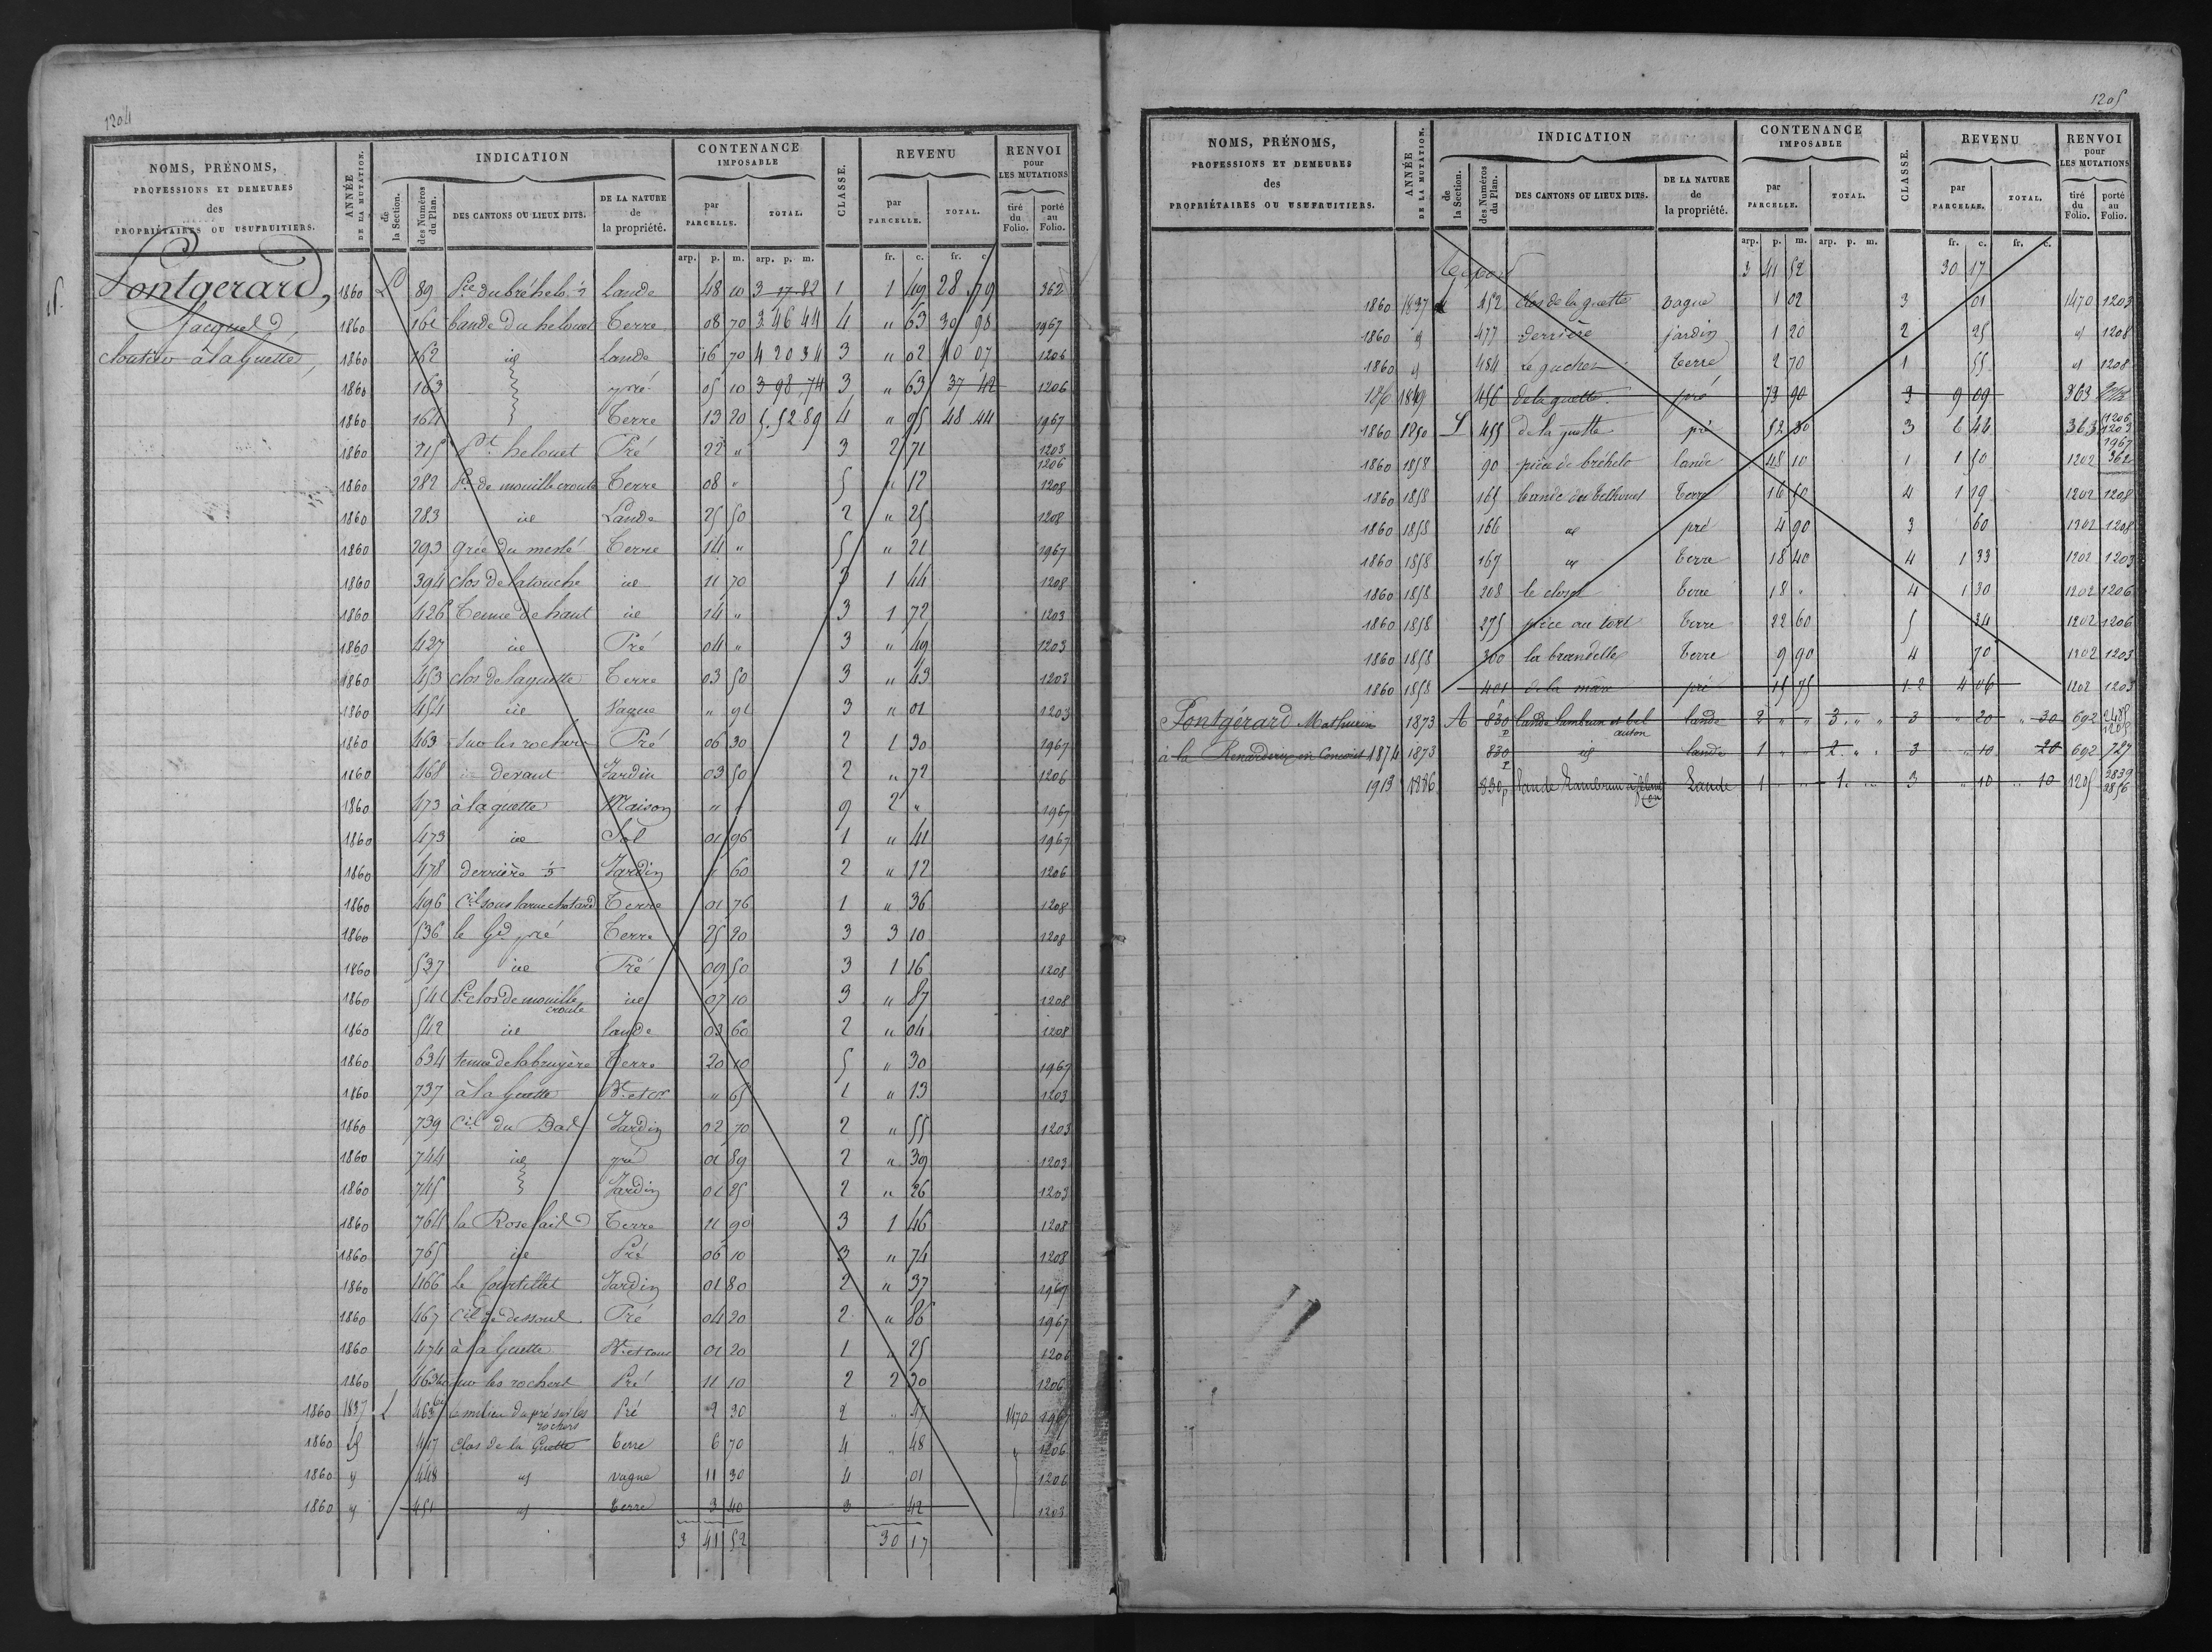 1204
NOMS, PRÉNOMS, PROFESSIONS ET DEMEURES des PROPRIÉTAIRES OU USUFRUITIERS.
ANNÉE DE LA MUTATION.
INDICATION
de la Section.
des Numéros du Plan.
DES CANTONS OU LIEUX DITS.
DE LA NATURE de la propriété.
CONTENANCE IMPOSABLE
par PARCELLE.
TOTAL.
CLASSE.
REVENU
par PARCELLE.
TOTAL.
RENVOI pour LES MUTATIONS
tiré du Folio.
porté au Folio.
arp. p. m. arp. p. m. fr. c. fr. c.
Pontgerard,
Jacques,
cloutier à la Guette,
1860 L 89 Lande 48 10 3 17 82 1 1 49 28 79 362
1860 161 bande du helouet Terre 08 70 3 46 44 4 " 63 30 98 1967
1860 162 id Lande 16 70 4 20 34 3 " 02 40 07 1206
1860 163 pré 05 10 3 98 74 3 " 63 37 42 1206
1860 164 Terre 13 20 5.52 89 4 " 95 48 44 1967
1860 215 Pt helouet Pré 22 " 3 2 71 1203 1206
1860 282 Pce de mouillecroute Terre 08 " 5 " 12 1208
1860 283 id Lande 25 50 2 " 25 1208
1860 293 grée du meslé Terre 14 " 5 " 21 1967
1860 394 clos de latouche id 11 70 3 1 44 1208
1860 426 Tenue de haut id 14 " 3 1 72 1203
1860 427 id Pré 04 " 3 " 49 1203
1860 453 clos de laguette Terre 03 50 3 " 43 1203
1860 454 id Vague " 91 3 " 01 1203
1860 463 sur les rochers Pré 06 30 2 1 30 1967
1860 468 devant Jardin 03 50 2 " 72 1206
1860 473 à laguette Maison " " 9 2 " 1967
1860 473 id Sol 01 96 1 " 41 1967
1860 478 derrière Jardin " 60 2 " 12 1206
1860 496 Cil sous larue chatard Terre 01 76 1 " 36 1208
1860 536 le Gd pré Terre 25 20 3 3 10 1208
1860 537 id Pré 09 50 3 1 16 1208
1860 541 Pt clos de mouille croute id 07 10 3 " 87 1208
1860 542 id lande 03 60 2 " 04 1208
1860 634 tenue de labruyère Terre 20 10 5 " 30 1967
1860 737 à la Guette " 65 1 " 13 1203
1860 739 Cil du Bas Jardin 02 70 2 " 55 1203
1860 744 id pré 01 89 2 " 39 1203
1860 745 Jardin 01 25 2 " 26 1203
1860 764 la Rose Terre 11 90 3 1 46 1208
1860 765 id Pré 06 10 3 " 74 1208
1860 466 Le Courtillet Jardin 01 80 2 " 37 1967
1860 467 Cil de dessous Pré 04 20 2 " 86 1967
1860 474 à la Guette Bt et cour 01 20 1 " 25 1206
1860 463 bis sur les rochers Pré 11 10 2 2 30 1206
1860 1837 L 463 le milieu du pré sur les rochers Pré 2 30 2 " 47 1470 1967
1860 id 447 Clos de la Guette terre 6 70 4 " 48 " 1206
1860 id 448 id vague 11 30 4 01 1206
1860 id 451 id terre 3 40 3 42 1203
3 41 52 30 17
1205
NOMS, PRÉNOMS, PROFESSIONS ET DEMEURES des PROPRIÉTAIRES OU USUFRUITIERS.
ANNÉE DE LA MUTATION.
INDICATION
de la Section.
des Numéros du Plan.
DES CANTONS OU LIEUX DITS.
DE LA NATURE de la propriété.
CONTENANCE IMPOSABLE
par PARCELLE.
TOTAL.
CLASSE.
REVENU
par PARCELLE.
TOTAL.
RENVOI pour LES MUTATIONS
tiré du Folio.
porté au Folio.
arp. p. m. arp. p. m. fr. c. fr. c.
Report 3 41 52 30 17
1860 1837 L 452 clos de la guette vague 1 02 3 01 1470 1203
1860 id 477 derrière jardin 1 20 2 25 id 1208
1860 id 484 Le guchet terre 2 70 1 55 id 1208
1849 456 de la guette pré 73 90 3 9 09 363
1860 1850 L 455 de la guette pré 52 30 3 6 44 363 1206 1203 1967
1860 1858 90 pièce de bréhelo lande 48 10 1 1 50 1202 362
1860 1858 165 bande des telhouet terre 16 50 4 1 19 1202 1208
1860 1858 166 id pré 4 90 3 60 1202 1208
1860 1858 167 id terre 18 40 4 1 33 1202 1203
1860 1858 208 le closet terre 18 " 4 1 30 1202 1206
1860 1858 275 pièce au tort terre 22 60 5 34 1202 1206
1860 1858 300 la brandelle terre 9 90 4 70 1202 1203
1860 1858 401 de la mare pré 15 75 1-2 4 06 1202 1203
Pontgérard Mathurin 1873 A 830 p lande lambrun et bel auton lande 2 " " 3 " " 3 " 20 " 30 692 2488 1205
à la Renardière en Concoret 1874 1873 830 p id lande 1 " " 2 " " 3 " 10 20 692 727
1913 1886 830p Lande Lambrun Lande 1 " " 1 " " 3 " 10 " 10 1205 2839 2856